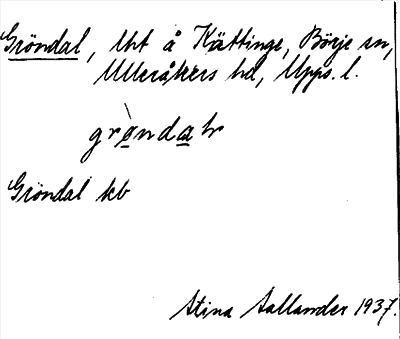 Gröndal, lht å Kättinge, Börje sn,
Ulleråkers hd, Upps. l.
gròndalr
Gröndal kb
Stina Sallander 1937.